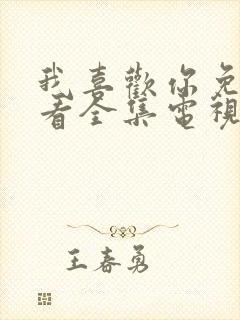 我喜歡你免
看全集電視
王春勇